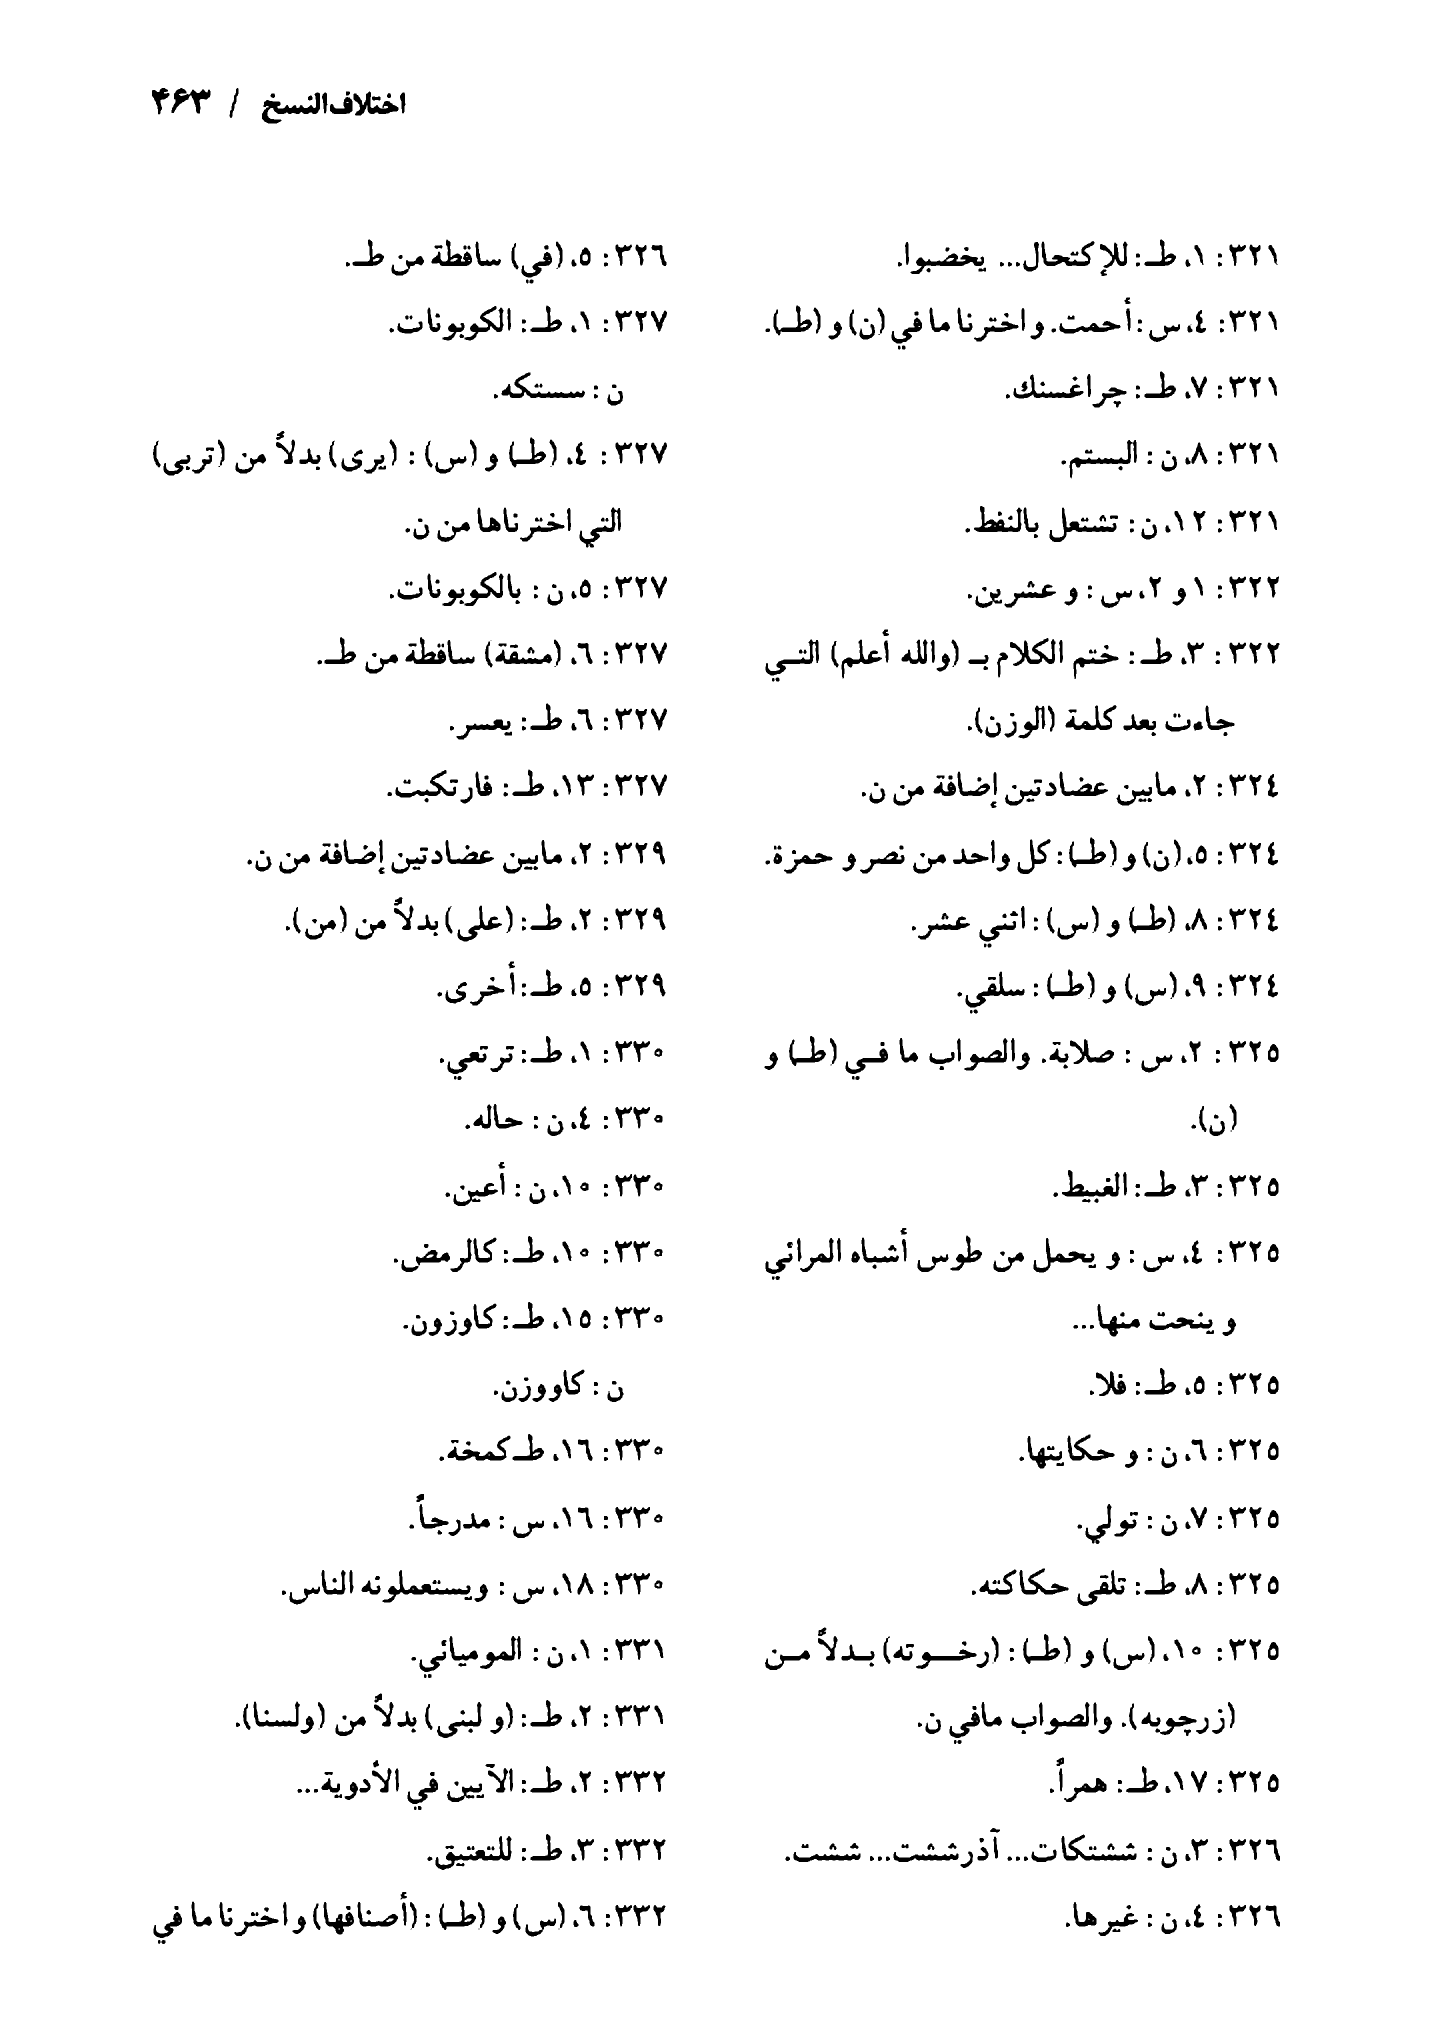 اختلاف النسخ / ۴۶۳
٣٢١: ١، طـ: للإكتحال... يخضبوا.
٣٢١: ٤، س: أحمت. و اخترنا ما في (ن) و (طـ).
٣٢١: ٧، طـ: چراغسنك.
٣٢١: ٨، ن: البستم.
٣٢١: ١٢، ن: تشتعل بالنفط.
٣٢٢: ١ و ٢، س: و عشرين.
٣٢٢: ٣، طـ: ختم الكلام بـ (والله أعلم) التي
جاءت بعد كلمة (الوزن).
٣٢٤: ٢، مابين عضادتين إضافة من ن.
٣٢٤: ٥، (ن) و (طـ): كل واحد من نصر و حمزة.
٣٢٤: ٨، (طـ) و (س): اثني عشر.
٣٢٤: ٩، (س) و (طـ): سلقي.
٣٢٥: ٢، س: صلابة. والصواب ما في (طـ) و
(ن).
٣٢٥: ٣، طـ: الغبيط.
٣٢٥: ٤، س: و يحمل من طوس أشباه المرائي
و ينحت منها...
٣٢٥: ٥، طـ: فلا.
٣٢٥: ٦، ن: و حكايتها.
٣٢٥: ٧، ن: تولي.
٣٢٥: ٨، طـ: تلقى حكاكته.
٣٢٥: ١٠، (س) و (طـ): (رخوته) بدلاً من
(زرچوبه). والصواب مافي ن.
٣٢٥: ١٧، طـ: همراً.
٣٢٦: ٣، ن: ششتكات... آذرششت... ششت.
٣٢٦: ٤، ن: غيرها.
٣٢٦: ٥، (في) ساقطة من طـ.
٣٢٧: ١، طـ: الكوبونات.
ن: سستكه.
٣٢٧: ٤، (طـ) و (س): (يرى) بدلاً من (تربى)
التي اخترناها من ن.
٣٢٧: ٥، ن: بالكوبونات.
٣٢٧: ٦، (مشقة) ساقطة من طـ.
٣٢٧: ٦، طـ: يعسر.
٣٢٧: ١٣، طـ: فارتكبت.
٣٢٩: ٢، مابين عضادتين إضافة من ن.
٣٢٩: ٢، طـ: (على) بدلاً من (من).
٣٢٩: ٥، طـ: أخرى.
٣٣٠: ١، طـ: ترتعي.
٣٣٠: ٤، ن: حاله.
٣٣٠: ١٠، ن: أعين.
٣٣٠: ١٠، طـ: كالرمض.
٣٣٠: ١٥، طـ: كاوزون.
ن: كاووزن.
٣٣٠: ١٦، طـ كمخة.
٣٣٠: ١٦، س: مدرجاً.
٣٣٠: ١٨، س: ويستعملونه الناس.
٣٣١: ١، ن: الموميائي.
٣٣١: ٢، طـ: (و لبنى) بدلاً من (ولسنا).
٣٣٢: ٢، طـ: الآيين في الأدوية...
٣٣٢: ٣، طـ: للتعتيق.
٣٣٢: ٦، (س) و (طـ): (أصنافها) و اخترنا ما في